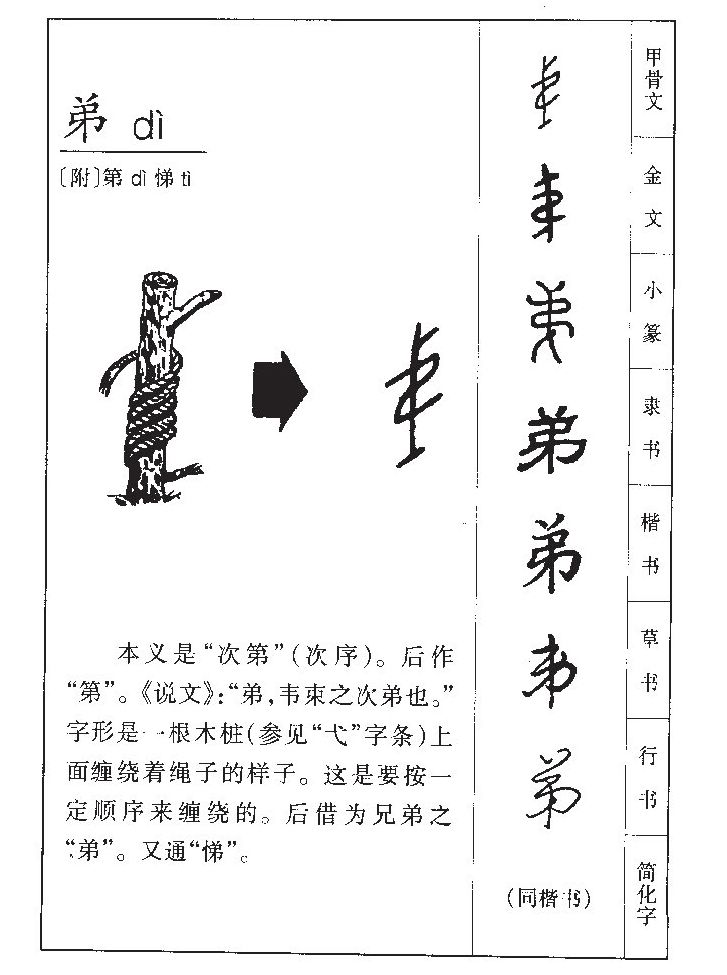 弟 dì
〔附〕第 dì 悌 tì
本义是“次第”(次序)。后作
“第”。《说文》:“弟,韦束之次弟也。”
字形是一根木桩(参见“弋”字条)上
面缠绕着绳子的样子。这是要按一
定顺序来缠绕的。后借为兄弟之
“弟”。又通“悌”。
甲骨文
金文
小篆
隶书
弟
楷书
弟
草书
行书
弟
简化字
(同楷书)